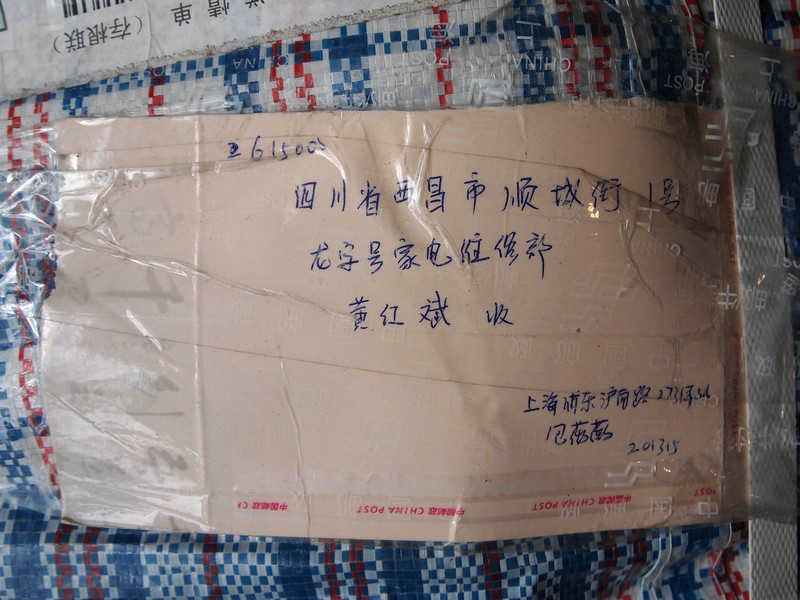 详情单
(存根联)
615000
四川省西昌市顺城街1号
龙字号家电维修部
黄红斌 收
上海浦东沪南路2731弄
201315
中国邮政 CHINA POST
中国邮政 CHINA POST
中国邮政 CHINA POST
POST